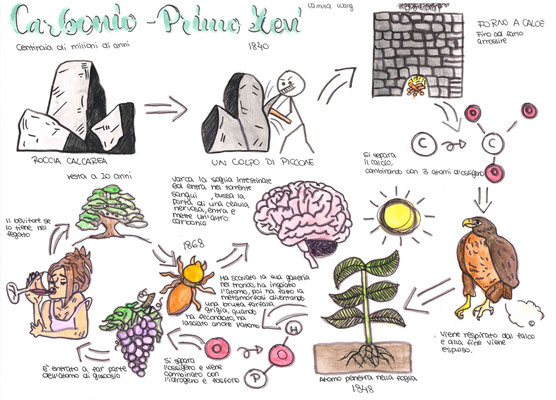 Carbonio - Primo Levi
camilla wang
Centinaia di milioni di anni
1840
FORNO A CALCE
Fino ad farlo
arrossire
ROCCIA CALCAREA
UN COLPO DI PICCONE
Si separa
il calcio,
combinando con 3 atomi d'ossigeno
C
C
O
O
O
resta a 20 anni
Il bevitore se
lo tiene nel
fegato
varca la soglia intestinale
ed entra nel torrente
sangui , bussa la
porta di una cellula
nervosa, entra e
mette un'altro
carbonio
1868
Ha scavato la sua galleria
nel tronco, ha ingoiato
l'atomo, poi ha fatto la
metamorfosi diventando
una brutta farfalla
grigia, quando
ha fecondato, ha
lasciato ancora l'atomo
Viene respirato dal falco
e alla fine viene
espulso.
È entrato a far parte
dell'atomo di glucosio
Si separa
l'ossigeno e viene
combinato con
l'idrogeno e fosforo
O
H
O
P
Atomo penetra nella foglia
1848
©